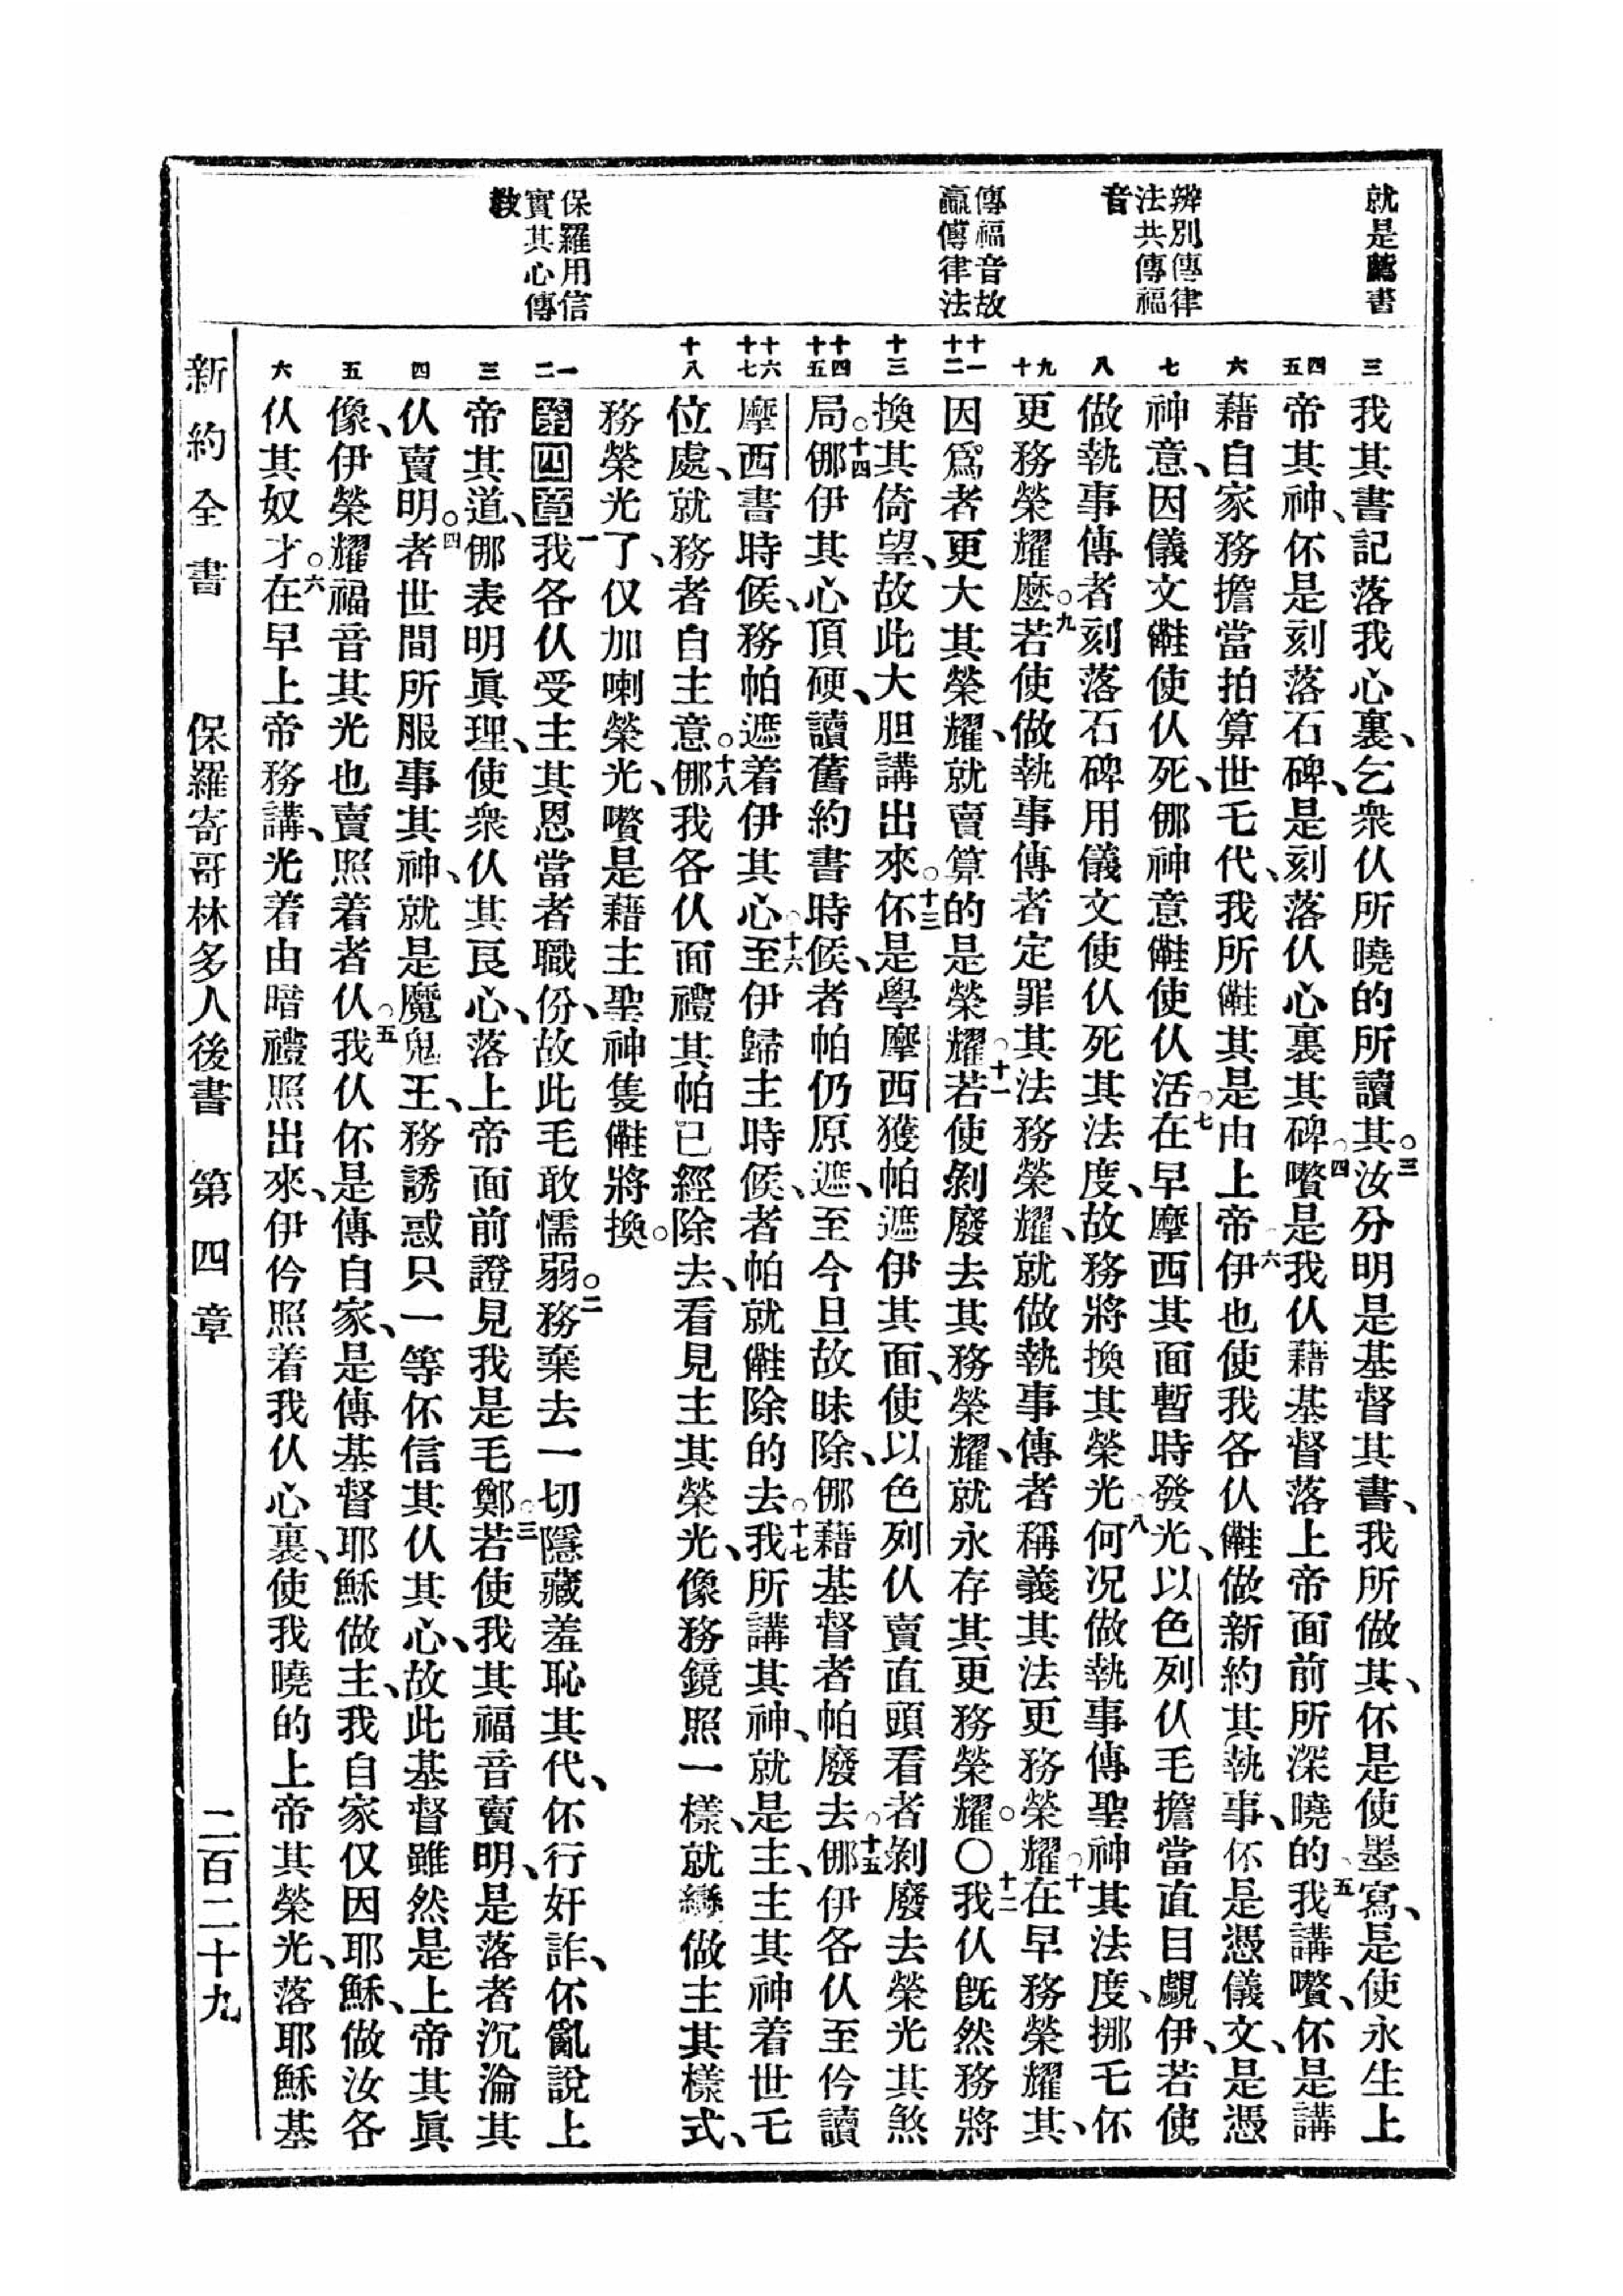 就是薦書
辨別傳律
法共傳福
音
傳福音故
贏傳律法
保羅用信
實其心傳
教
三
四
五
六
七
八
九
十
十一
十二
十三
十四
十五
十六
十七
十八
一
二
三
四
五
六
我其書記落我心裏、乞衆仈所曉的所讀其。三汝分明是基督其書、我所做其、伓是使墨寫、是使永生上
帝其神、伓是刻落石碑、是刻落仈心裏其碑。四㗔是我仈藉基督落上帝面前所深曉的、五我講㗔、伓是講
藉自家務擔當拍算世乇代、我所㒕其是由上帝。六伊也使我各仈㒕做新約其執事、伓是憑儀文、是憑
神意、因儀文㒕使仈死、㑚神意㒕使仈活。七在早摩西其面暫時發光、以色列仈毛擔當直目覷伊、若使
做執事傳者刻落石碑用儀文使仈死其法度、故務將換其榮光、八何况做執事傳聖神其法度、挪乇伓
更務榮耀麼。九若使做執事傳者定罪其法務榮耀、就做執事傳者稱義其法更務榮耀。十在早務榮耀其、
因爲者更大其榮耀、就賣算的是榮耀。十一若使剝廢去其務榮耀、就永存其更務榮耀。○十二我仈旣然務將
換其倚望、故此大胆講出來。十三伓是學摩西獲帕遮伊其面、使以色列仈賣直頭看者剝廢去榮光其煞
局。十四㑚伊其心頂硬、讀舊約書時候、者帕仍原遮、至今旦故昧除、㑚藉基督者帕廢去。十五㑚伊各仈至仱讀
摩西書時候、務帕遮着伊其心。十六至伊歸主時候、者帕就㒕除的去。十七我所講其神、就是主、主其神着世乇
位處、就務者自主意。十八㑚我各仈面禮其帕已經除去、看見主其榮光、像務鏡照一樣、就變做主其樣式、
務榮光了、仅加喇榮光、㗔是藉主聖神隻㒕將換。
第四章一我各仈受主其恩當者職份、故此毛敢懦弱。二務棄去一切隱藏羞恥其代、伓行奸詐、伓亂說上
帝其道、㑚表明眞理、使衆仈其良心、落上帝面前證見我是毛鄭。三若使我其福音賣明、是落者沉淪其
仈賣明。四者世間所服事其神、就是魔鬼王、務誘惑只一等伓信其仈其心、故此基督雖然是上帝其眞
像、伊榮耀福音其光也賣照着者仈。五我仈伓是傳自家、是傳基督耶穌做主、我自家仅因耶穌、做汝各
仈其奴才。六在早上帝務講、光着由暗禮照出來、伊仱照着我仈心裏、使我曉的上帝其榮光、落耶穌基
新約全書　保羅寄哥林多人後書　第四章　二百二十九